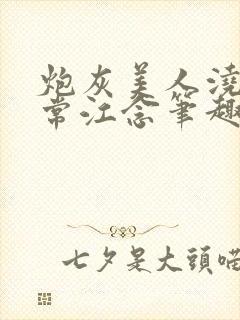 炮灰美人澆
常江念筆趣
七夕是大頭喵